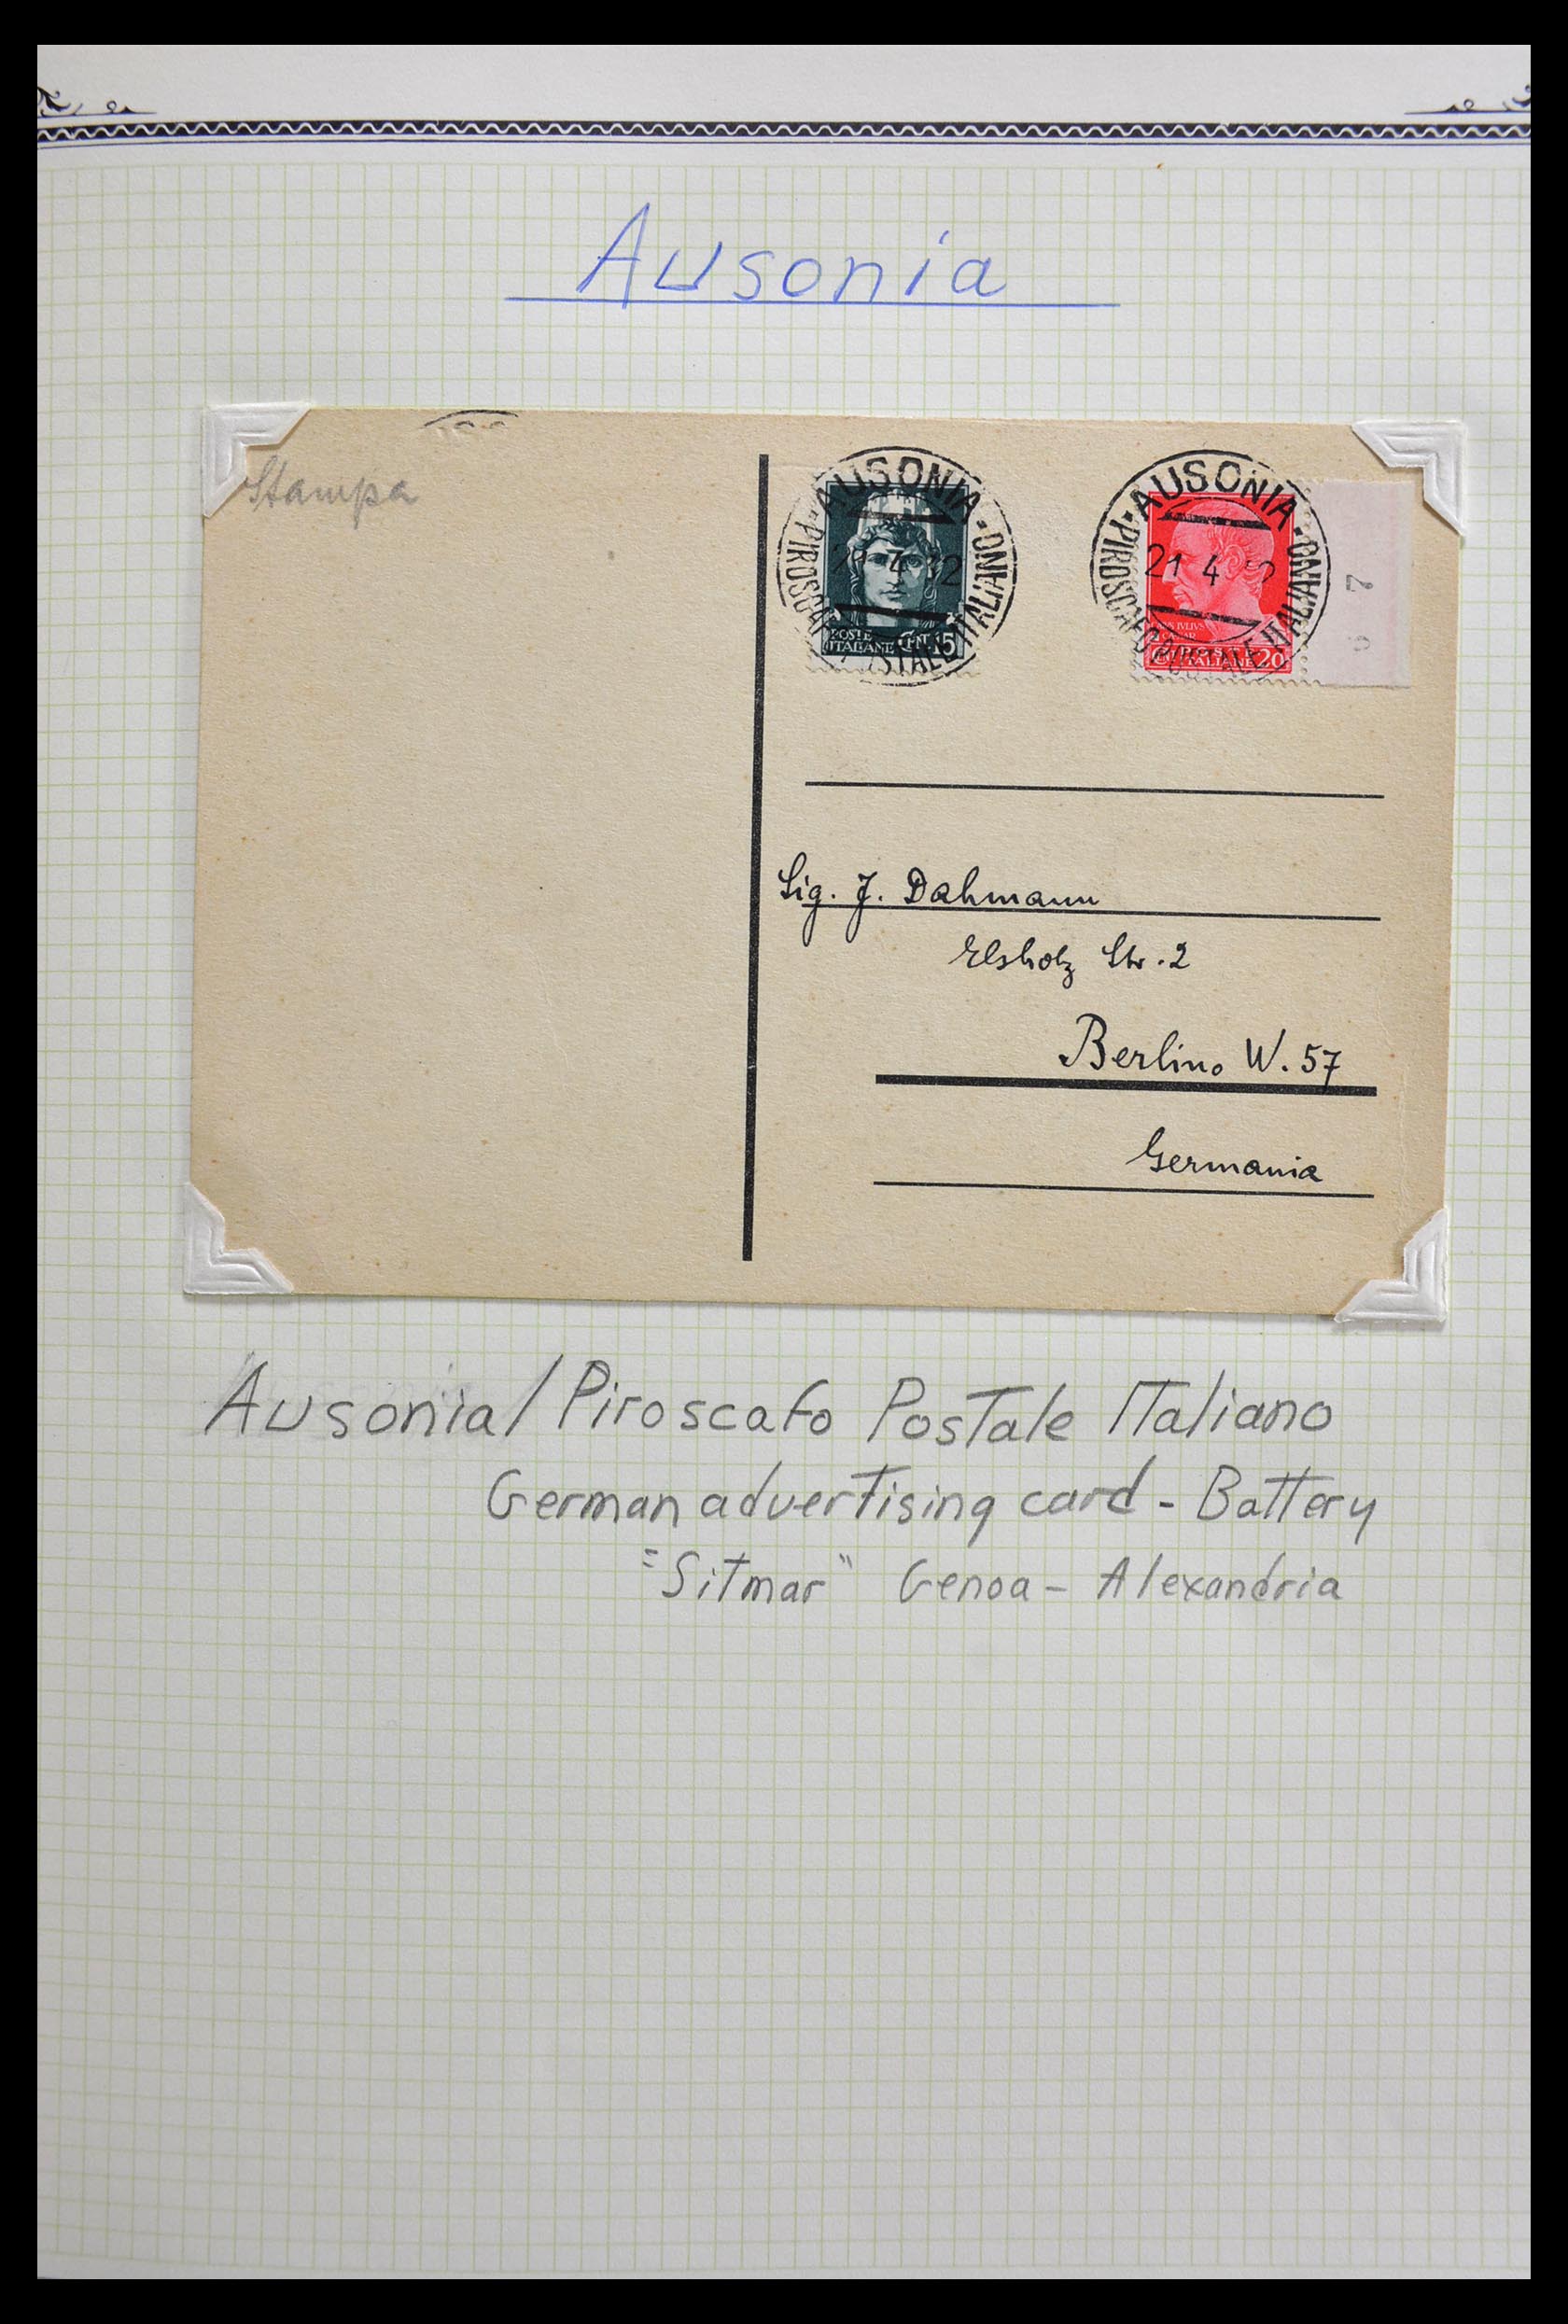 Ausonia
Stampa
AUSONIA
PIROSCAFO POSTALE ITALIANO
21 4 32
POSTE
ITALIANE
CENT. 15
AUSONIA
PIROSCAFO POSTALE ITALIANO
21 4
ITALIANE 20
7
Sig. J. Dahmann
Elsholz Str. 2
Berlino W. 57
Germania
Ausonia / Piroscafo Postale Italiano
German advertising card - Battery
"Sitmar" Genoa - Alexandria